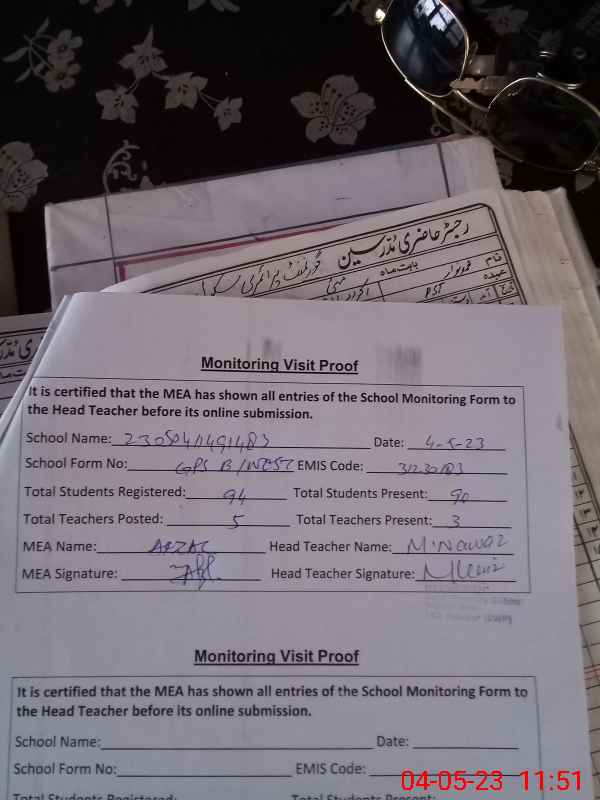 رجسٹر حاضری مدرسین
گورنمنٹ پرائمری سکول
بابت ماہ مئی
نام
عہدہ
PST
Monitoring Visit Proof
It is certified that the MEA has shown all entries of the School Monitoring Form to
the Head Teacher before its online submission.
School Name: Date: 4-5-23
School Form No: GPS B/WEST EMIS Code: 31230183
Total Students Registered: 94 Total Students Present: 90
Total Teachers Posted: 5 Total Teachers Present: 3
MEA Name: Head Teacher Name: M.Nawaz
MEA Signature: Head Teacher Signature:
Monitoring Visit Proof
It is certified that the MEA has shown all entries of the School Monitoring Form to
the Head Teacher before its online submission.
School Name: Date:
School Form No: EMIS Code:
Total Students Registered: Total Students Present:
04-05-23 11:51